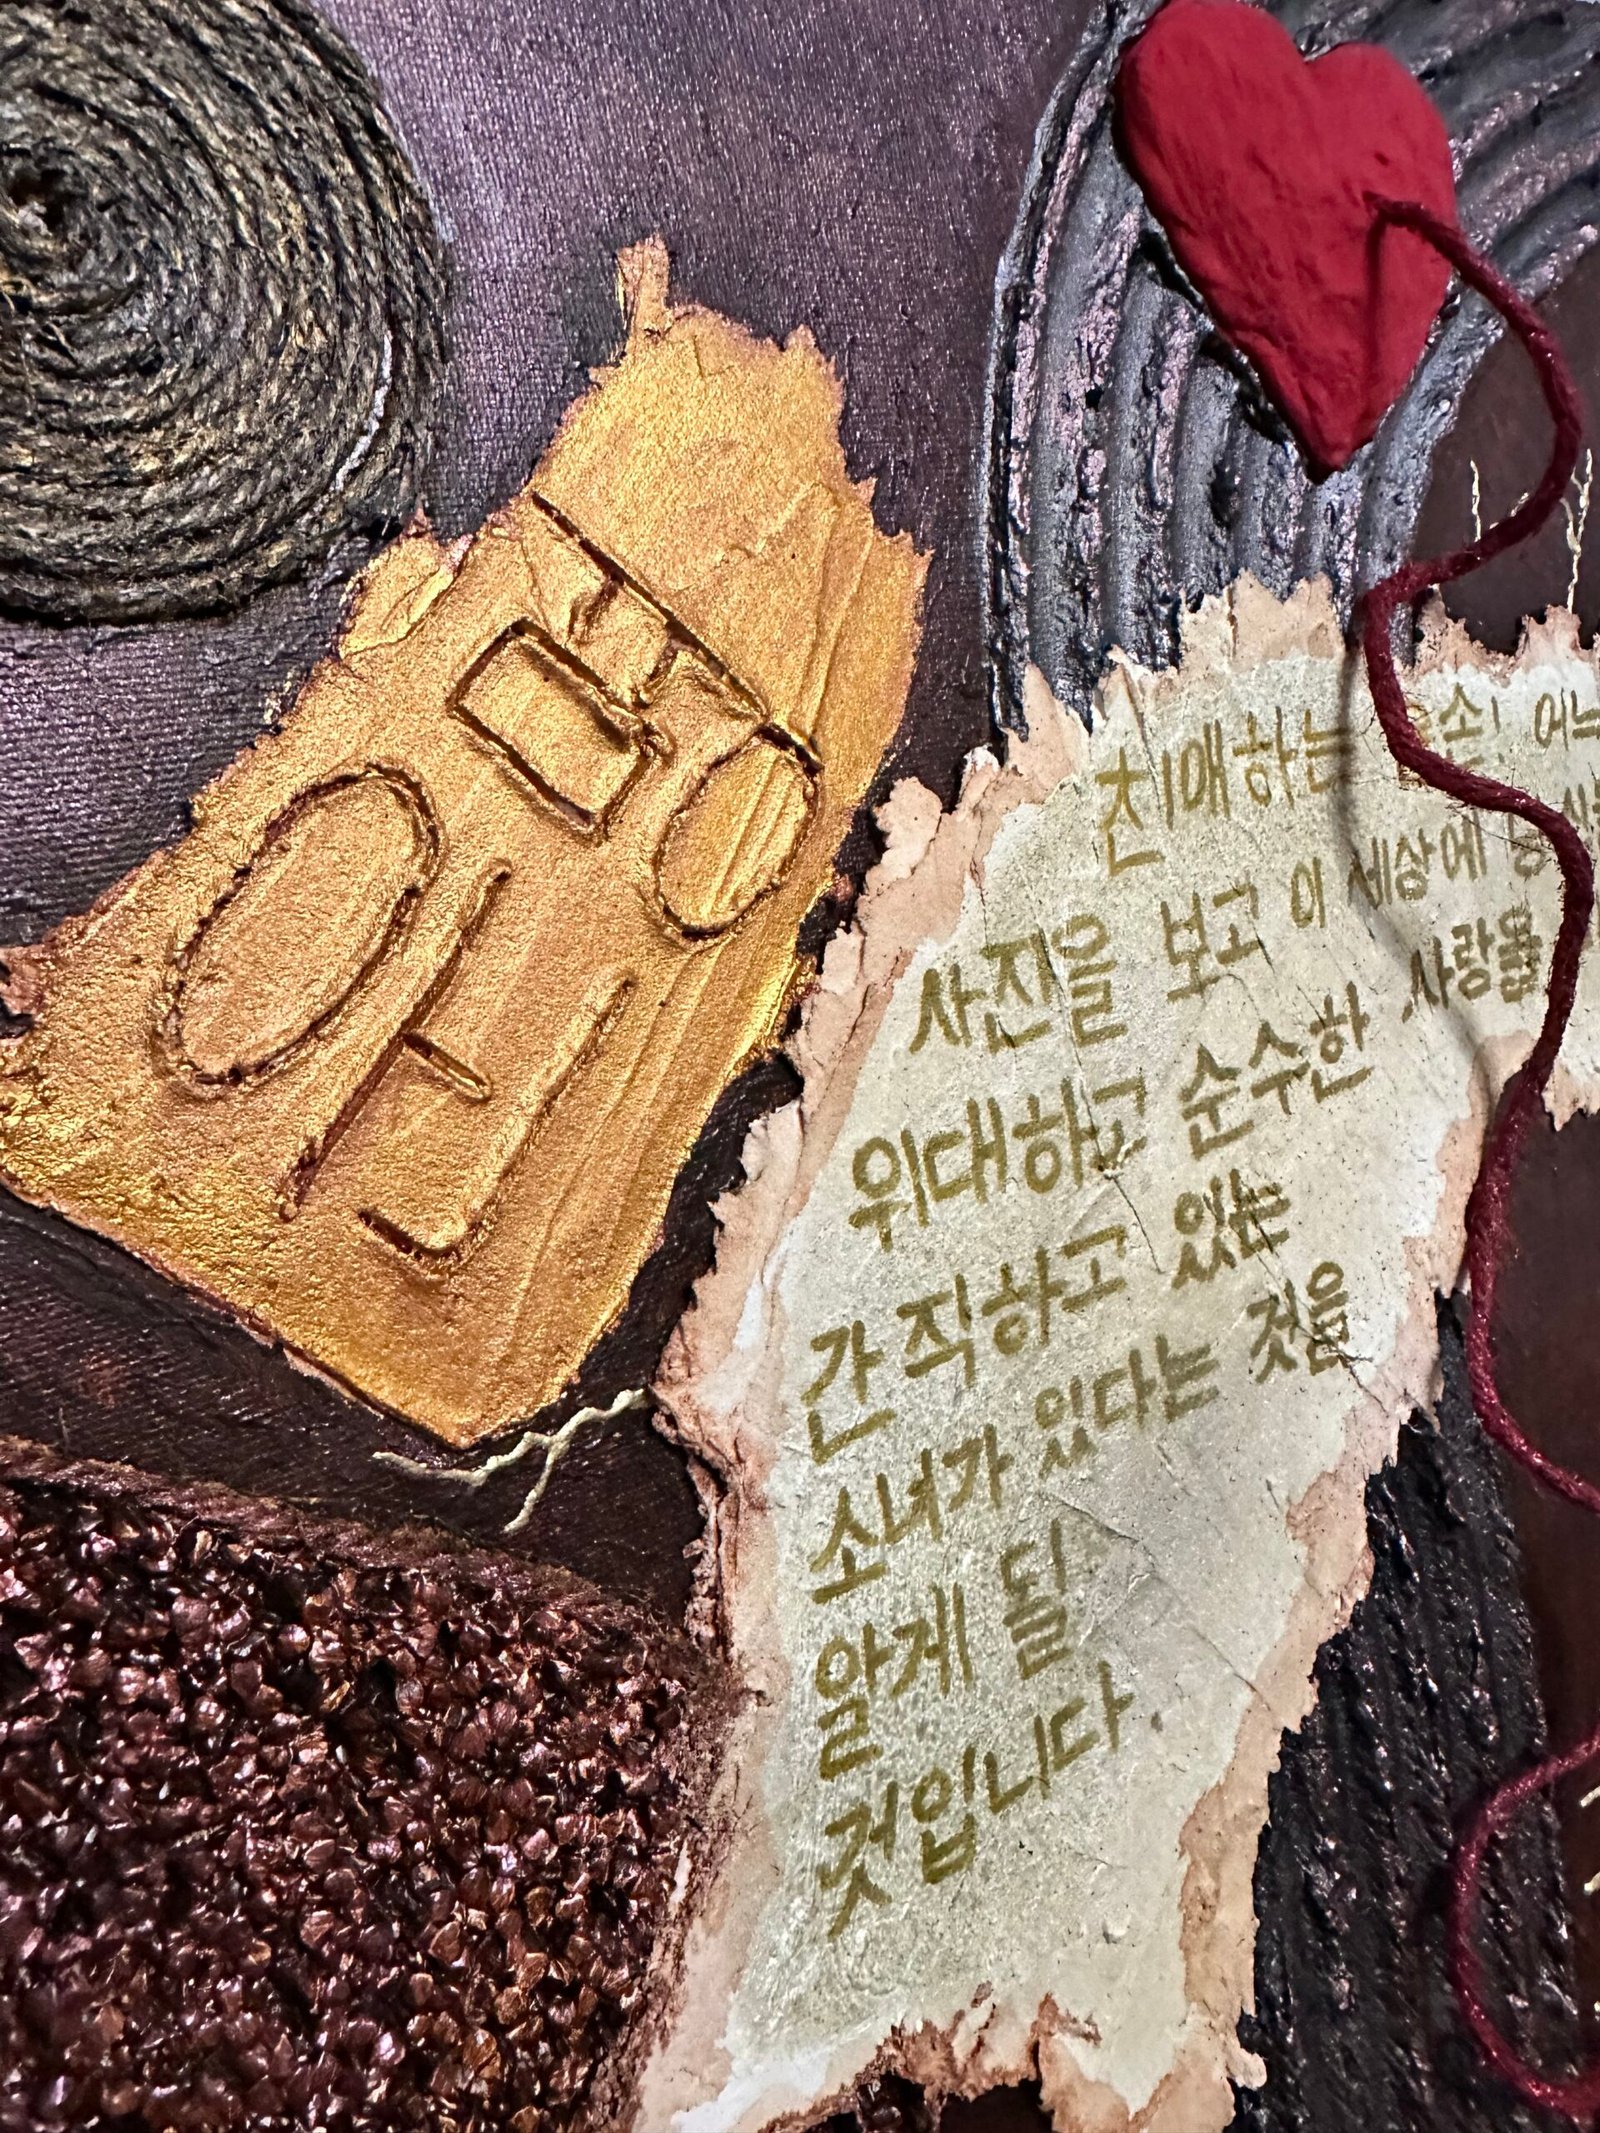 친애하는 어느
사진을 보고 이 세상에
위대하고 순수한 사랑을
간직하고 있는
소녀가 있다는 것을
알게 될
것입니다.